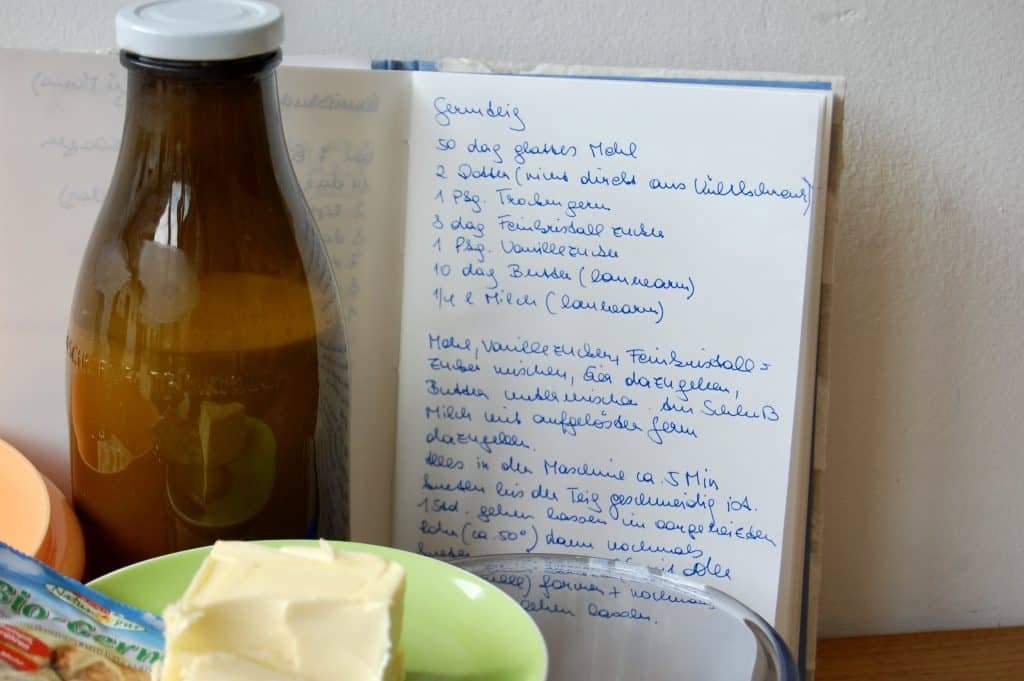 Germteig
50 dag glattes Mehl
2 Dotter (nicht direkt aus Kühlschrank)
1 Pkg. Trockengerm
8 dag Feinkristallzucker
1 Pkg. Vanillezucker
10 dag Butter (lauwarm)
1/4 l Milch (lauwarm)
Mehl, Vanillezucker, Feinkristall-
zucker mischen, Eier dazugeben,
Butter untermischen. Am Schluß
Milch mit aufgelöster Germ
dazugeben.
Alles in der Maschine ca. 5 Min
kneten bis der Teig geschmeidig ist.
1 Std. gehen lassen im vorgeheizten
Rohr (ca. 50°) dann nochmals
kneten oder
formen + nochmals
gehen lassen.
Natur
Bio-Germ